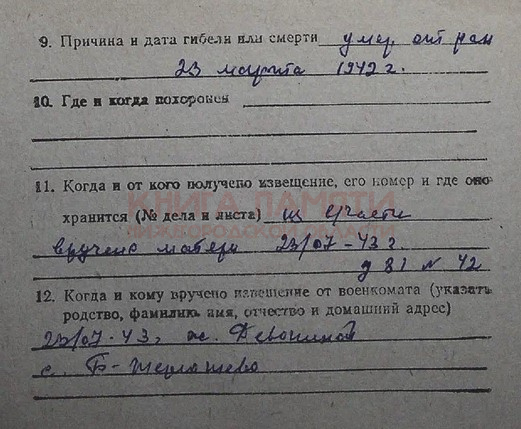 9. Причина и дата гибели или смерти умер от ран
23 марта 1942 г.
10. Где и когда похоронен
11. Когда и от кого получено извещение, его номер и где оно
КНИГА ПАМЯТИ
хранится (№ дела и листа) из в/части
НИЖЕГОРОДСКОЙ ОБЛАСТИ
вручено матери 23/07-43 г
д 81 N 42
12. Когда и кому вручено извещение от военкомата (указать
родство, фамилию имя, отчество и домашний адрес)
23/07-43г
с. Б-